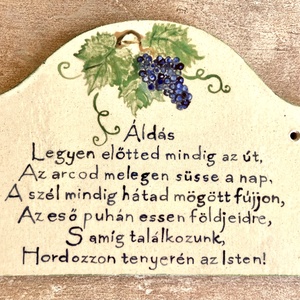 Áldás
Legyen előtted mindig az út,
Az arcod melegen süsse a nap,
A szél mindig hátad mögött fújjon,
Az eső puhán essen földjeidre,
S amíg találkozunk,
Hordozzon tenyerén az Isten!